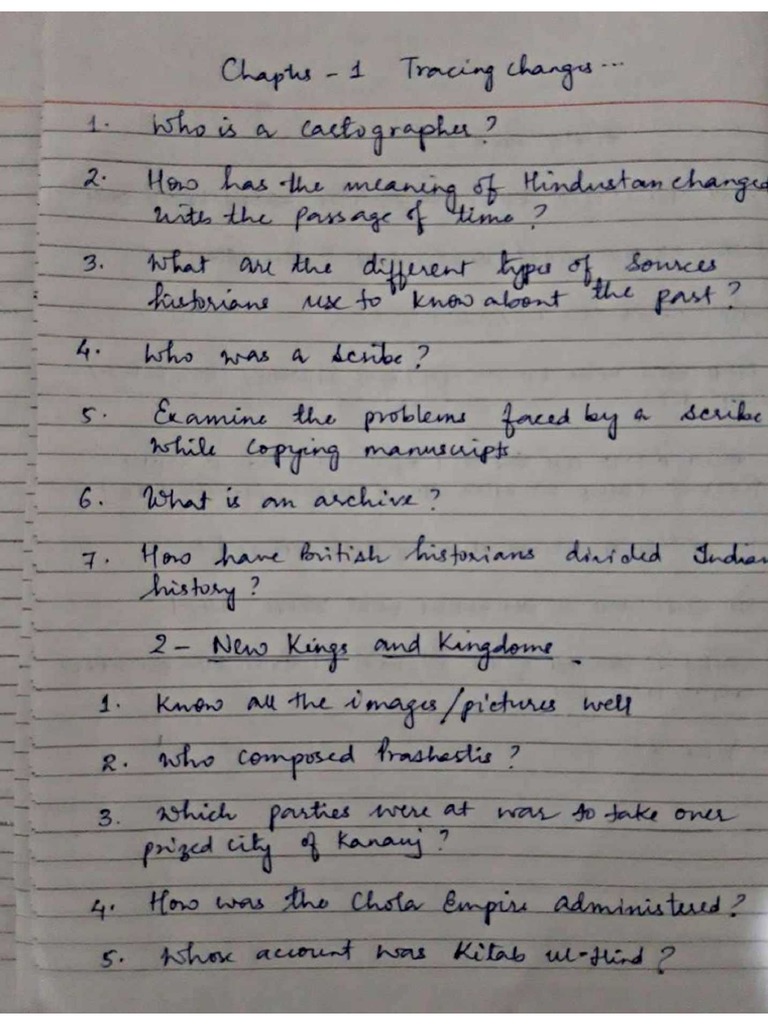 Chapter - 1 Tracing changes ...
1. Who is a cartographer?
2. How has the meaning of Hindustan changed
with the passage of time?
3. What are the different types of sources
historians use to know about the past?
4. Who was a scribe?
5. Examine the problems faced by a scribe
while copying manuscripts.
6. What is an archive?
7. How have British historians divided Indian
history?
2 - New Kings and Kingdoms.
1. Know all the images/pictures well
2. Who composed Prashastis?
3. Which parties were at war to take over
prized city of Kanauj?
4. How was the Chola Empire administered?
5. Whose account was Kitab ul-Hind?